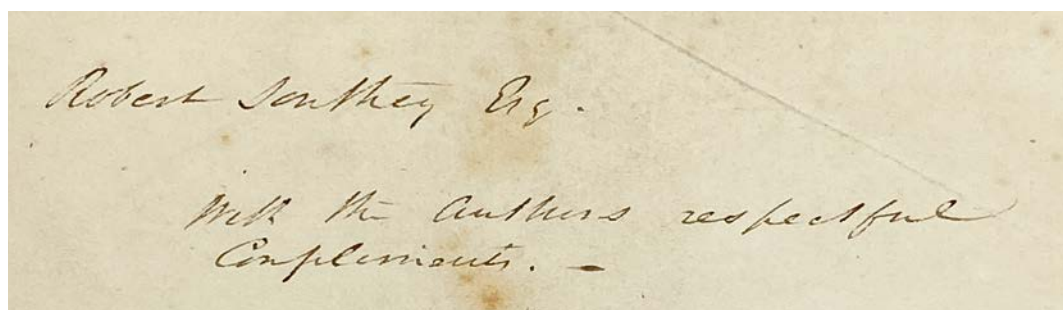 Robert Southey Esq.
With the Authors respectful
Compliments. –